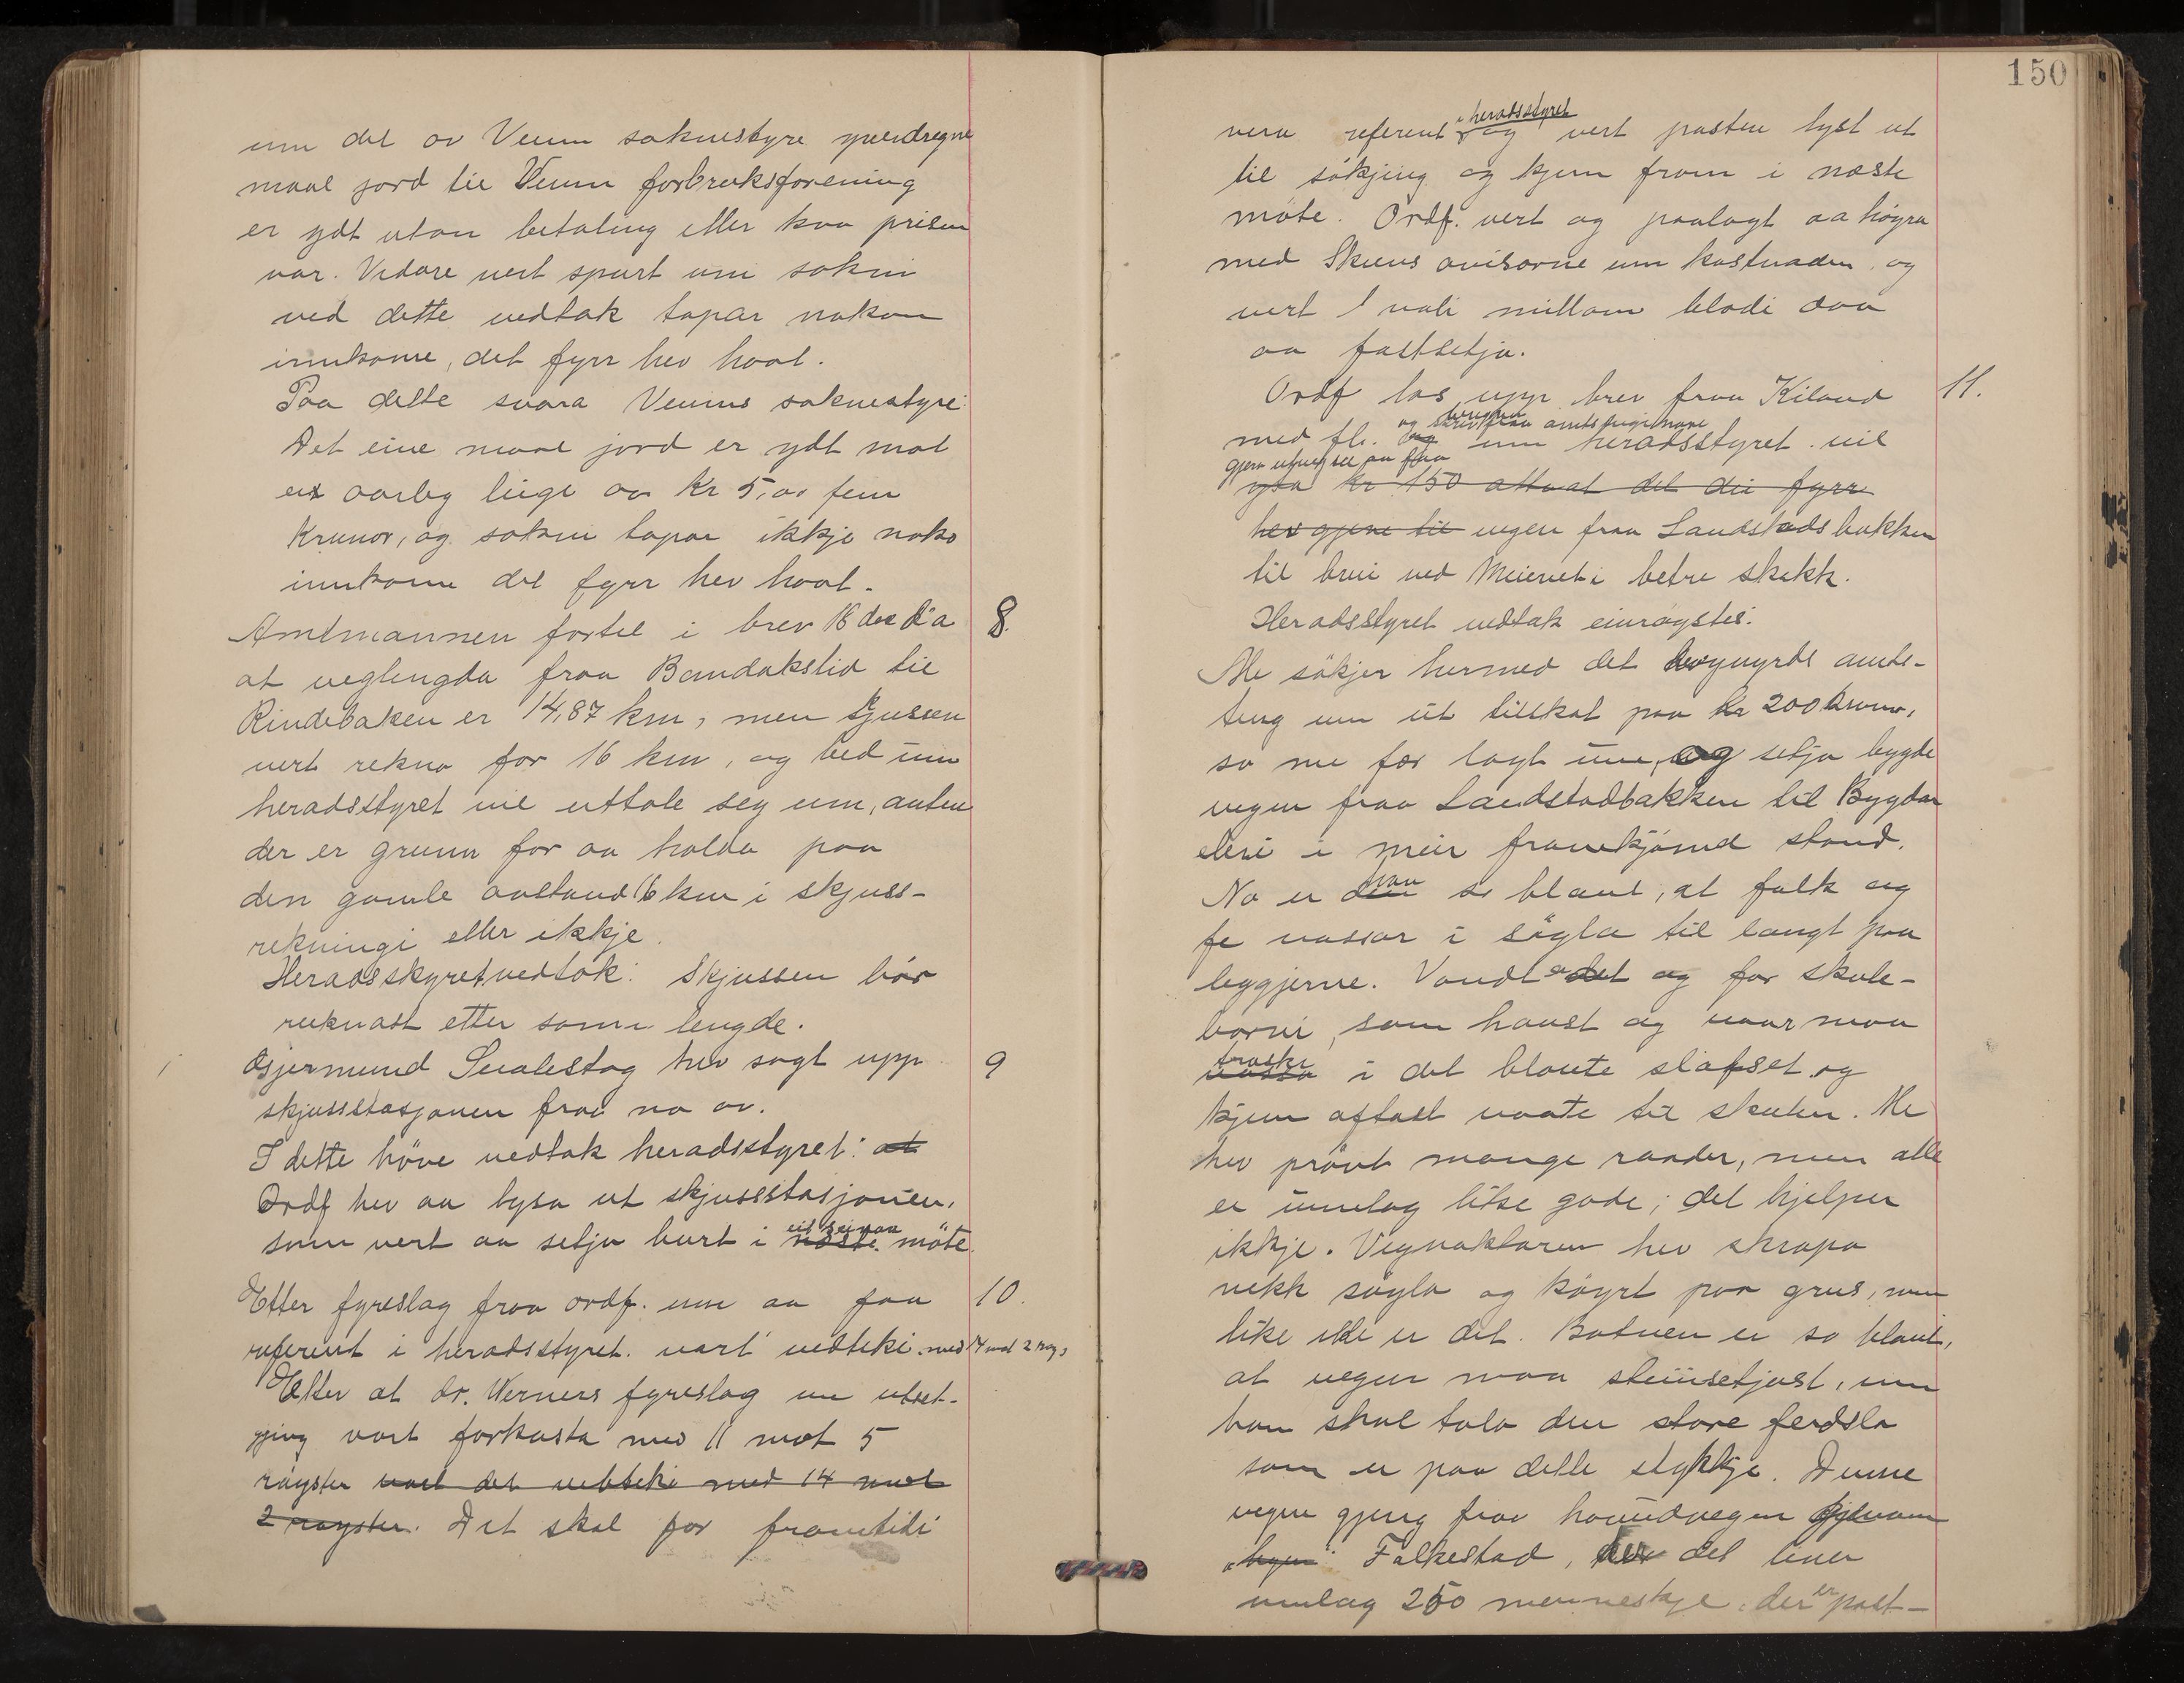 um det av Venum soknestyre
maal jord til Venum forbruksforening
er ydt utan betaling eller kva prisen
var. Vidare vert spurt um sokni
ved dette vedtak tapar nokon
innkome, det fyrr hev havt.
Paa dette svara Venums soknestyre:
Det eine maal jord er ydt mot
ei aarleg leige av Kr 5,00 fem
Krunor, og sokni tapar ikkje noko
innkome det fyrr hev havt.
Amtmannen fortel i brev 16 des d.a 8.
at veglengda fraa Bandakslid til
Rindebaken er 14,87 km, men skjussen
vert rekna for 16 km, og bed um
heradsstyret vil uttale seg um, anten
der er grunn for aa halda paa
den gamle avstand 16 km i skjuss-
rekningi eller ikkje.
Heradsskyret vedtok: Skjussen bör
reknast etter sann lengde.
Gjermund Sualestog hev sagt upp 9
skjusstasjonen fraa no av.
I dette höve vedtok heradsstyret: at
Ordf hev aa lysa ut skjussstasjonen,
eit seinare
som vert aa setja burt i næste möte.
Etter fyreslag fraa ordf. um aa faa 10.
referent i heradsstyret. vart vedteki med 14 mot 2 røys
Etter at dr. Werners fyreslag um utset-
jing vart forkasta med 11 mot 5
röyster vart det vedteke med 14 mot
2 røyster. Det skal for framtidi
150
i heradsstyret
vera referent og vert posten lyst ut
til sökjing og kjem fram i næste
möte. Ordf. vert og paalagt aa höyra
med Skiens avisorne um kostnaden, og
vert / vali millom bladi daa
aa fastsetja.
Ordf las upp brev fraa Kiland 11.
og skriv fraa amtsingeniøre
med fl. og um heradsstyret vil
gjera utveg til aa faa
yta kr 150 attaat det dei fyrr
hev gjeve til vegen fraa Landstadsbakken
til brui ved Meieriet i betre skikk.
Heradsstyret vedtok einröystes:
Me sökjer hermed det amts-
ting um eit tilskot paa kr 200 kronor,
so me fær lagt um, og setja bygde
vegen fraa Landstadbakken til Bygdar
elvi i meir framkjömd stand.
han
No er den so blaut, at folk og
fe vassar i söyla til langt paa
leggjerne. Vondt er det og for skule-
borni, som haust og vaar maa
traske
vassa i det blaute slapset og
kjem oftast vaate til skulen. Me
hev prövt mange raader, men alle
er umlag like gode; det hjelper
ikkje. Vegvaktaren hev skrapa
vekk söyla og köyrt paa grus, men
like ille er det. Botnen er so blaut,
at vegen maa steinsetjast, um
han skal tola den store ferdsla
som er paa dette stykkje. Denne
vegen gjeng fraa hovudvegen gjenom
"byen" Falkestad, der det liver
umlag 250 menneskje. der er post-